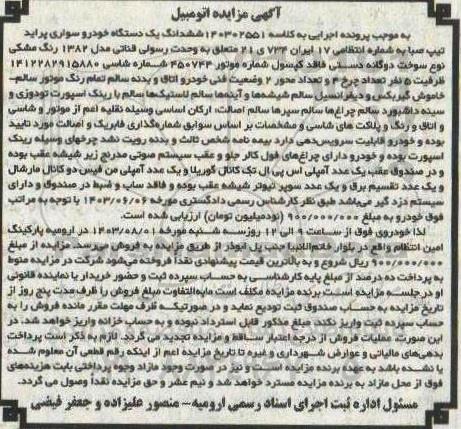 آگهی مزایده اتومبیل
به موجب پرونده اجرایی به کلاسه ۱۴۰۳۰۲۵۵۱ ششدانگ یک دستگاه خودرو سواری پراید
تیپ صبا به شماره انتظامی ۱۷ ایران ۷۳۴ ی ۲۱ متعلق به وحدت رسولی قنانی مدل ۱۳۸۲ رنگ مشکی
نوع سوخت دوگانه دستی فاقد کپسول شماره موتور ۴۵۰۷۴۴ شماره شاسی ۱۴۱۲۲۸۲۹۱۵۸۸۰
ظرفیت ۵ نفر تعداد چرخ ۴ و تعداد محور ۲ وضعیت فنی خودرو اتاق و بدنه سالم تمام رنگ موتور سالم-
خاموش گیربکس و دیفرانسیل سالم شیشه‌ها و آینه‌ها سالم لاستیک‌ها سالم با رینگ اسپورت تودوزی و
سینه داشبورد سالم چراغ‌ها سالم سپرها سالم اصالت: ارکان اساسی وسیله نقلیه اعم از موتور و شاسی
و اتاق و رنگ و پلاکت های شاسی و مشخصات بر اساس سوابق شماره‌گذاری فابریک و اصالت مورد تایید
بوده و خودرو قابلیت سرویس‌دهی دارد بیمه نامه شخص ثالث و بدنه رویت نشد چرخهای وسیله رینگ
اسپورت بوده و خودرو دارای چراغ‌های فول کالر جلو و عقب سیستم صوتی مدرنج زیر شیشه عقب بوده
و در صندوق عقب یک عدد آمپلی اس پی ال تک کانال کوریلا و یک عدد آمپلی من فیس دو کانال مارشال
و یک عدد تقسیم برق و یک عدد سوپر تیوتر شیشه عقب بوده و فاقد ساب و ضبط در صندوق و دارای
سیستم دزد گیر می‌باشد طبق نظر کارشناس رسمی دادگستری مورخه ۱۴۰۳/۰۶/۰۶ با توجه به مراتب
فوق خودرو به مبلغ ۹۰۰/۰۰۰/۰۰۰ (نودمیلیون تومان) ارزیابی شده است.
لذا خودروی فوق از ساعت ۹ الی ۱۲ روز سه شنبه مورخه ۱۴۰۳/۰۸/۰۱ در ارومیه پارکینگ
امین انتظام واقع در بلوار خاتم‌الانبیا جنب پل ابوذر از طریق مزایده به فروش می‌رسد مزایده از مبلغ
۹۰۰/۰۰۰/۰۰۰ ریال شروع و به بالاترین قیمت پیشنهادی نقداً فروخته می‌شود شرکت در مزایده منوط
به پرداخت ده درصد از مبلغ پایه کارشناسی به حساب سپرده ثبت و حضور خریدار یا نماینده قانونی
او در جلسه مزایده است برنده مزایده مکلف است مابه‌التفاوت مبلغ فروش را ظرف مدت پنج روز از
تاریخ مزایده به حساب صندوق ثبت تودیع نماید و در صورتیکه ظرف مهلت مقرر مانده فروش را به
حساب سپرده ثبت واریز نکند مبلغ مذکور قابل استرداد نبوده و به حساب خزانه واریز خواهد شد. در
این صورت، عملیات فروش از درجه اعتبار ساقط و مزایده تجدید می گردد. لازم به ذکر است پرداخت
بدهی‌های مالیاتی و عوارض شهرداری و غیره تا تاریخ مزایده اعم از اینکه رقم قطعی آن معلوم شده
یا نشده باشد به عهده برنده مزایده است و نیز در صورت وجود مازاد وجوه پرداختی بابت هزینه‌های
فوق از محل مازاد به برنده مزایده مسترد خواهد شد و نیم عشر و حق مزایده نقداً وصول می گردد.
مسئول اداره ثبت اجرای اسناد رسمی ارومیه- منصور علیزاده و جعفر فیضی